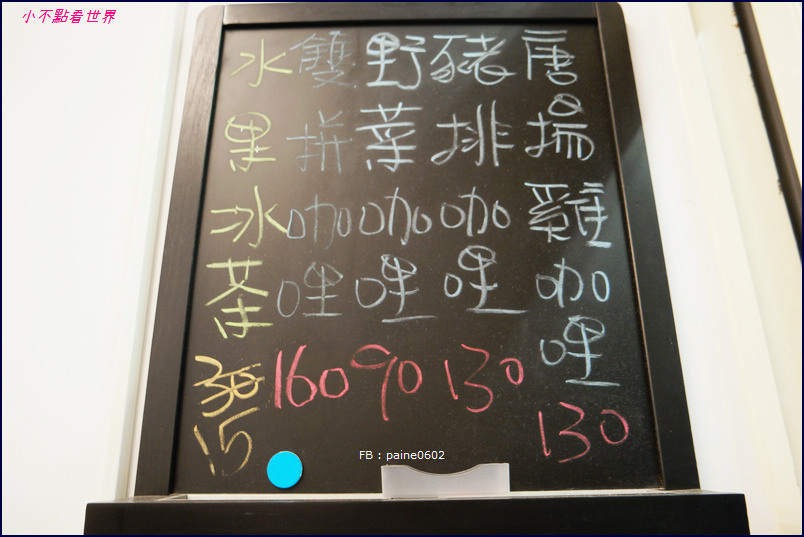 小不點看世界
唐揚雞咖哩 130
豬排咖哩 130
野菜咖哩 90
雙拼咖哩 160
水果冰茶 30 15
FB : paine0602